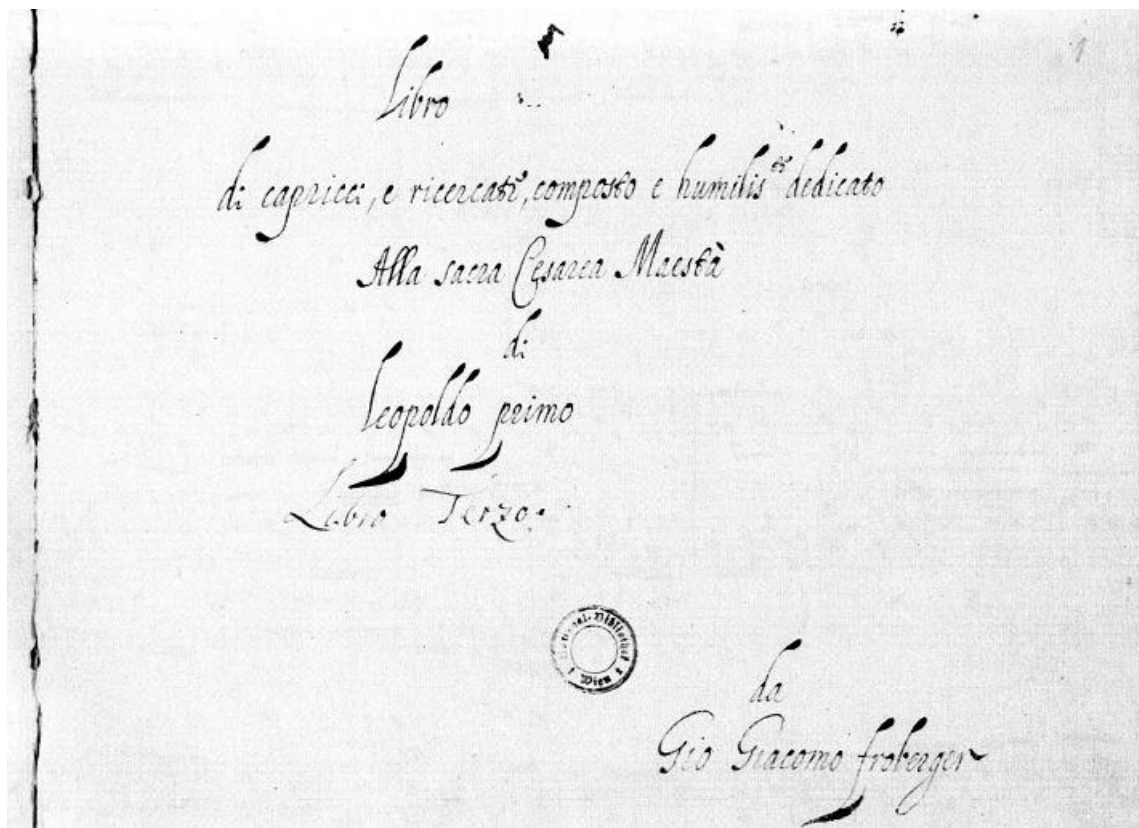 Libro
di capricci, e ricercati, composto e humilis.te dedicato
Alla sacra Cesarea Maestà
di
Leopoldo primo
Libro Terzo.
National-Bibliothek
Wien
da
Gio Giacomo froberger
1